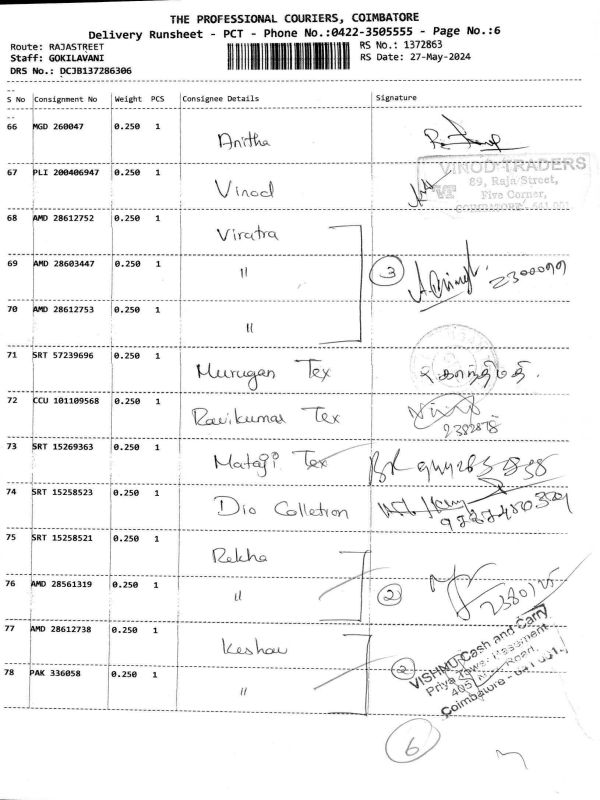 THE PROFESSIONAL COURIERS, COIMBATORE
Delivery Runsheet - PCT - Phone No.:0422-3505555 - Page No.:6
Route: RAJASTREET
RS No.: 1372863
Staff: GOKILAVANI
RS Date: 27-May-2024
DRS No.: DCJB137286306
S No Consignment No Weight PCS Consignee Details Signature
66 MGD 260047 0.250 1 Anitha
67 PLI 200406947 0.250 1 Vinod
VINOD TRADERS
89, Raja Street,
Five Corner,
COIMBATORE - 641 001
68 AMD 28612752 0.250 1 Viratra
69 AMD 28603447 0.250 1 " 3 2300099
70 AMD 28612753 0.250 1 "
71 SRT 57239696 0.250 1 Murugan Tex
72 CCU 101109568 0.250 1 Ravikumar Tex
73 SRT 15269363 0.250 1 Mataji Tex
74 SRT 15258523 0.250 1 Dio Colletion
75 SRT 15258521 0.250 1 Rekha
76 AMD 28561319 0.250 1 " 2 2380125
77 AMD 28612738 0.250 1 Keshav
78 PAK 336058 0.250 1 " 2
VISHNU Cash and Carry
Priya Tower Basement
Coimbatore - 641 001.
6